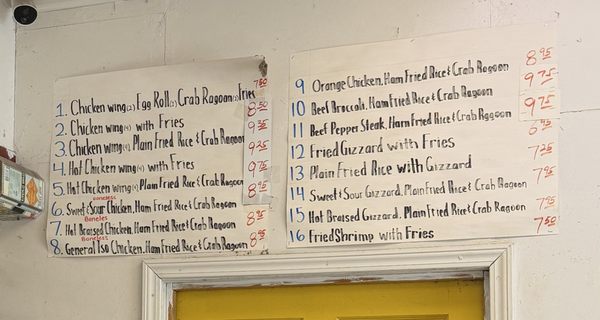 1. Chicken wing(2) Egg Roll(1) Crab Ragoon(2) Fries 7.50
2. Chicken wing(4) with Fries 8.50
3. Chicken wing(4) Plain Fried Rice & Crab Ragoon 9.35
4. Hot Chicken wing(4) with Fries 9.25
5. Hot Chicken wing(4) Plain Fried Rice & Crab Ragoon 9.75
boneless
6. Sweet & Sour Chicken, Ham Fried Rice & Crab Ragoon 8.95
Boneles
7. Hot Braised Chicken, Ham Fried Rice & Crab Ragoon 8.95
Boneless
8. General Tso Chicken, Ham Fried Rice & Crab Ragoon 8.95
9 Orange Chicken, Ham Fried Rice & Crab Ragoon 8.95
10 Beef Broccoli, Ham Fried Rice & Crab Ragoon 9.75
11 Beef Pepper Steak, Ham Fried Rice & Crab Ragoon 9.75
12 Fried Gizzard with Fries
13 Plain Fried Rice with Gizzard 7.25
14 Sweet & Sour Gizzard, Plain Fried Rice & Crab Ragoon 7.95
15 Hot Braised Gizzard, Plain Fried Rice & Crab Ragoon 7.95
16 Fried Shrimp with Fries 7.50